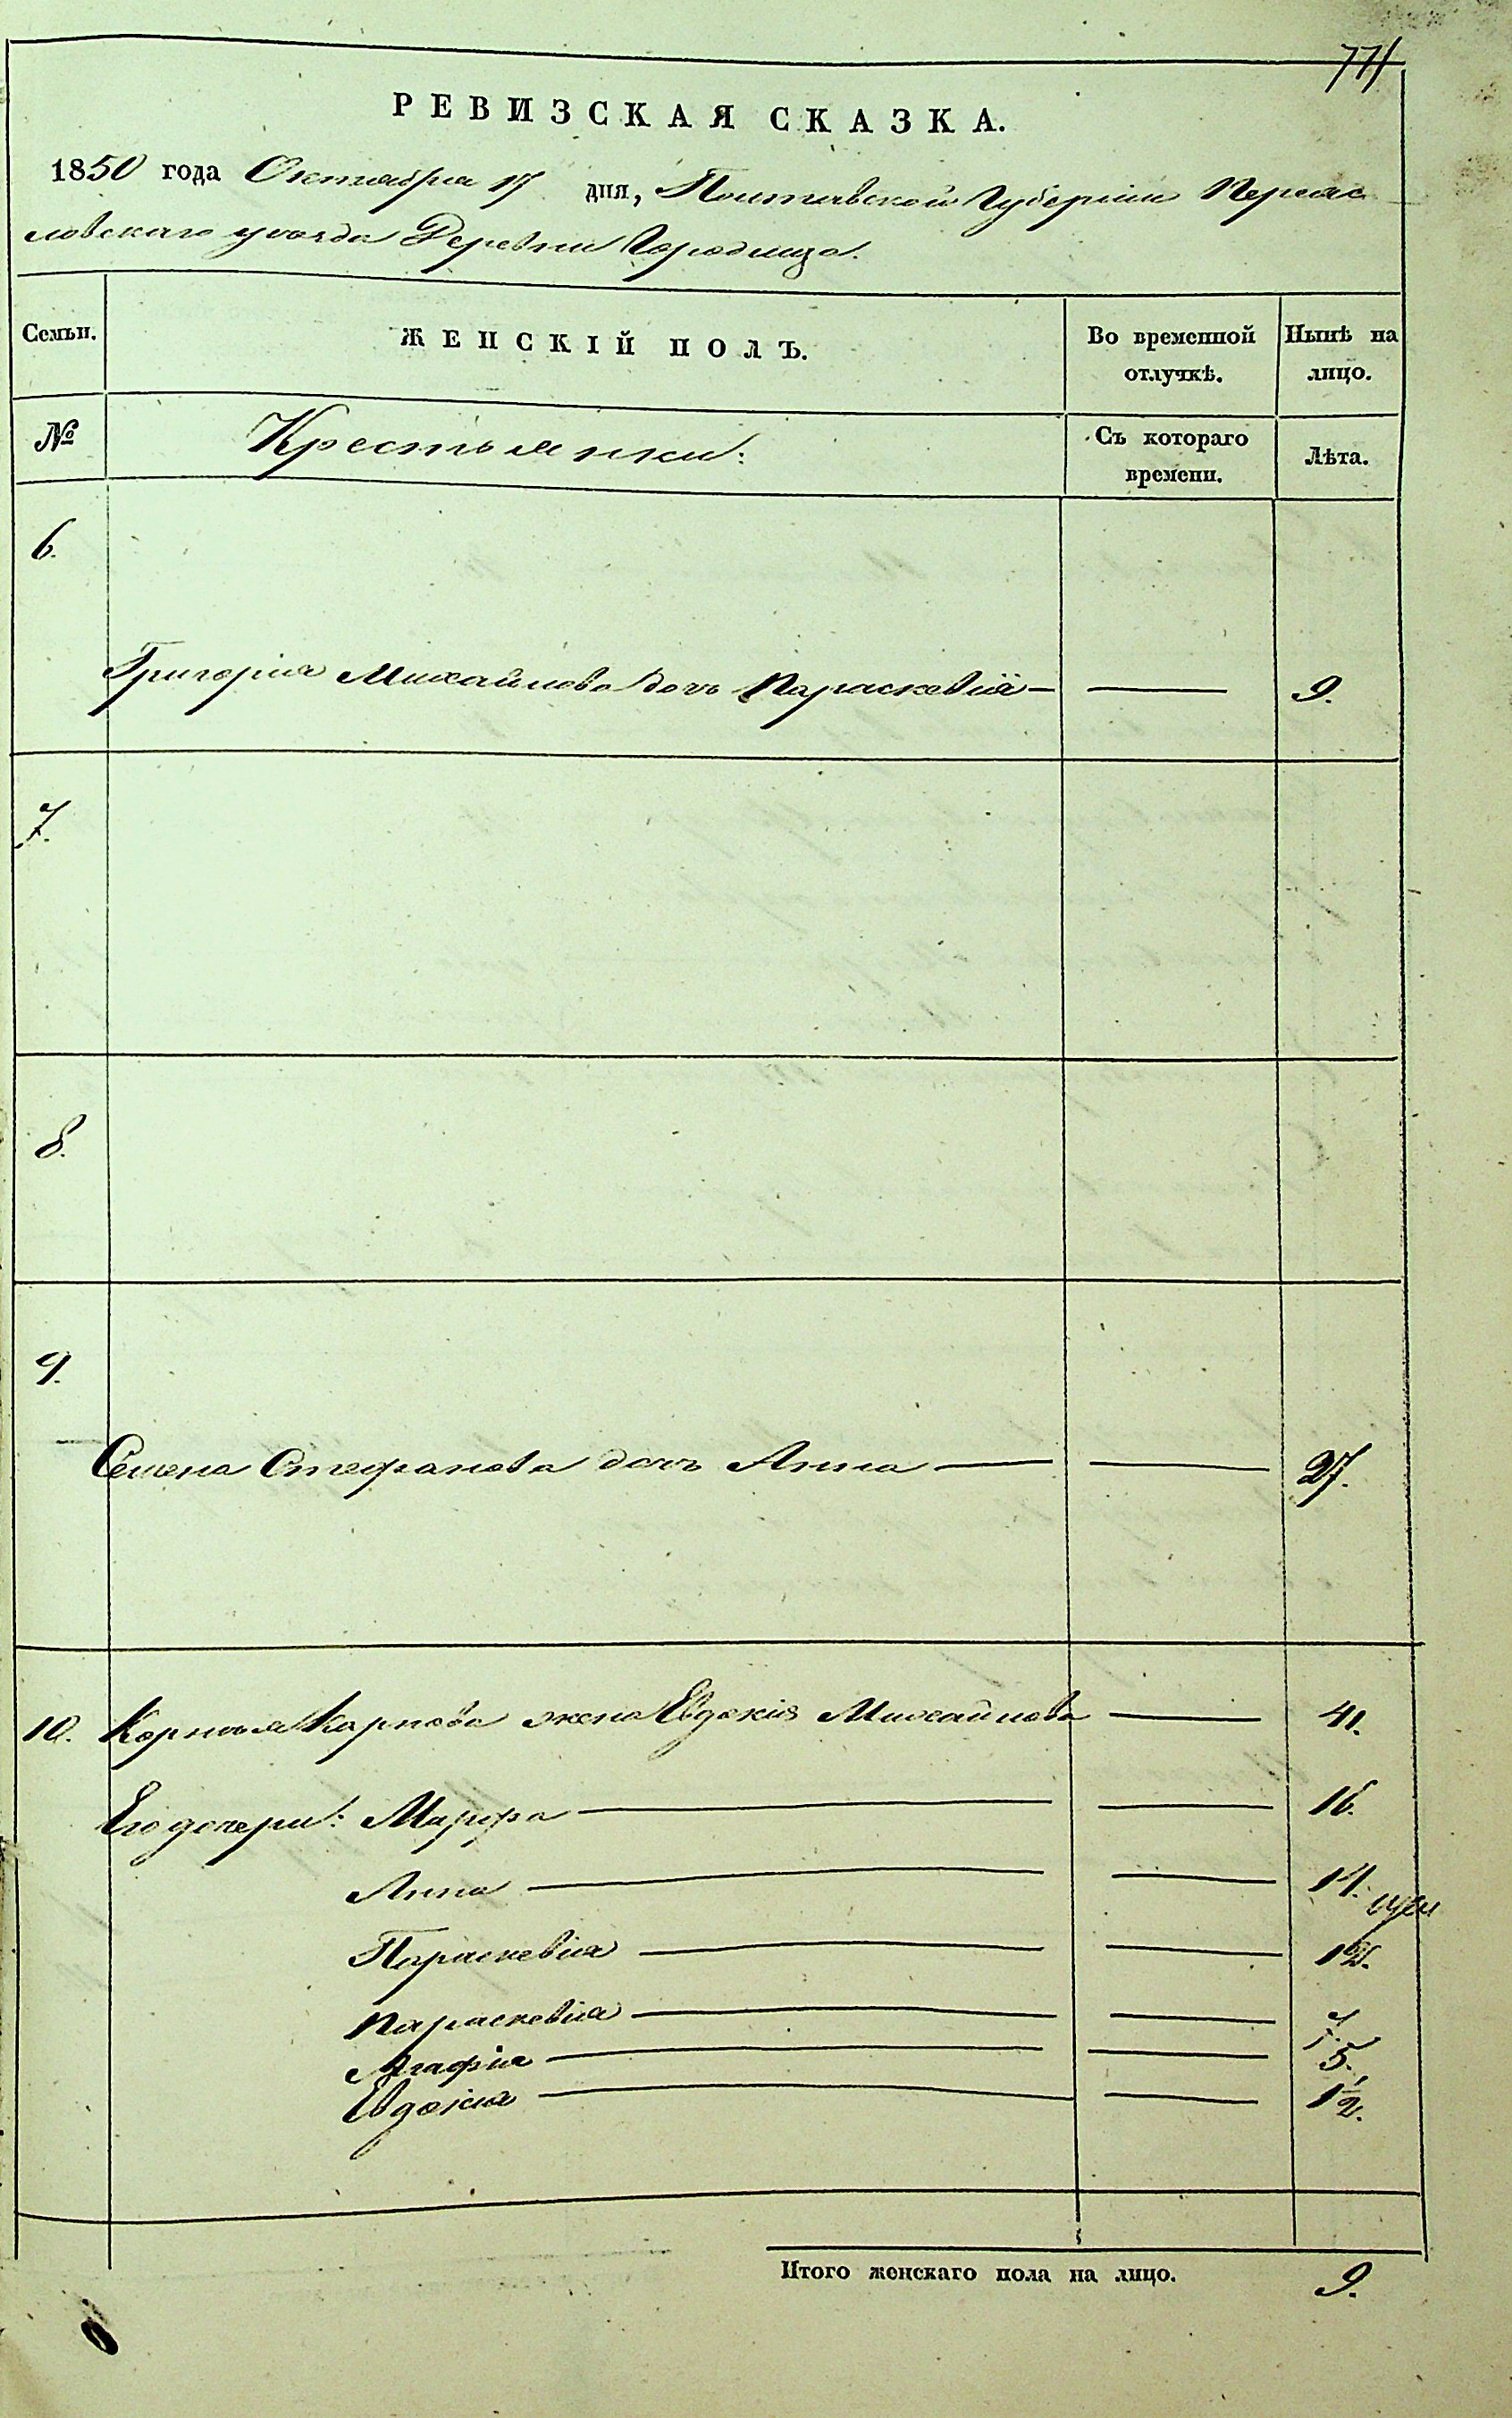 771
РЕВИЗСКАЯ СКАЗКА.
1850 года Октября 17 дня, Полтавской Губерніи Переяс
ловскаго уѣзда Деревни Городища.
Семьи. ЖЕНСКІЙ ПОЛЪ. Во временной отлучкѣ. Нынѣ на лицо.
№ Крестьянки: Съ котораго времени. Лѣта.
6.
Григорія Михайлова дочь Параскевія — — 9.
7.
8.
9.
Семена Стефанова дочь Анна — — 27.
10. Корнѣя Карпова жена Евдокія Михайлова — 41.
Его дочери: Марфа — — 16.
Анна — — 14.
Параскевія — — 12.
Параскевія — — 7.
Агафія — — 5.
Евдокія — — 1½.
Итого женскаго пола на лицо. 9.